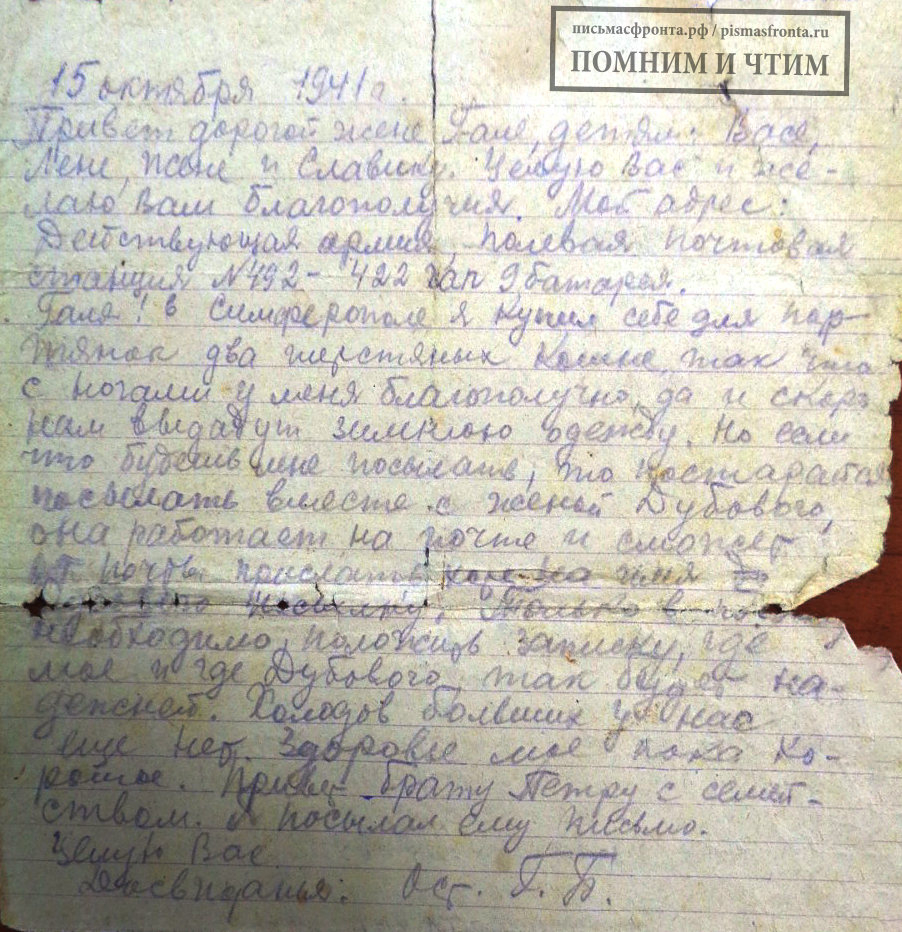 письмасфронта.рф / pismasfronta.ru
ПОМНИМ И ЧТИМ
15 октября 1941 г.
Привет дорогой жене Гале, детям: Васе,
Лене, Жене и Славику. Целую Вас и же-
лаю Вам благополучия. Мой адрес:
Действующая армия, полевая почтовая
станция №492 - 422 гап 9 батарея.
Галя! в Симферополе я купил себе для пор-
тянок два шерстяных кашне, так что
с ногами у меня благополучно, да и скоро
нам выдадут зимнюю одежду. Но если
что будешь мне посылать, то постарайся
посылать вместе с женой Дубового,
она работает на почте и сможет
от почты прислать на имя
посылку. Только в
необходимо положить записку, где
мое и где Дубового, так будет на-
дежней. Холодов больших у нас
еще нет. Здоровье мое пока хо-
рошое. Привет брату Петру с семей-
ством. Я посылал ему письмо.
Целую Вас
Досвиданья: Ост. Г. Б.